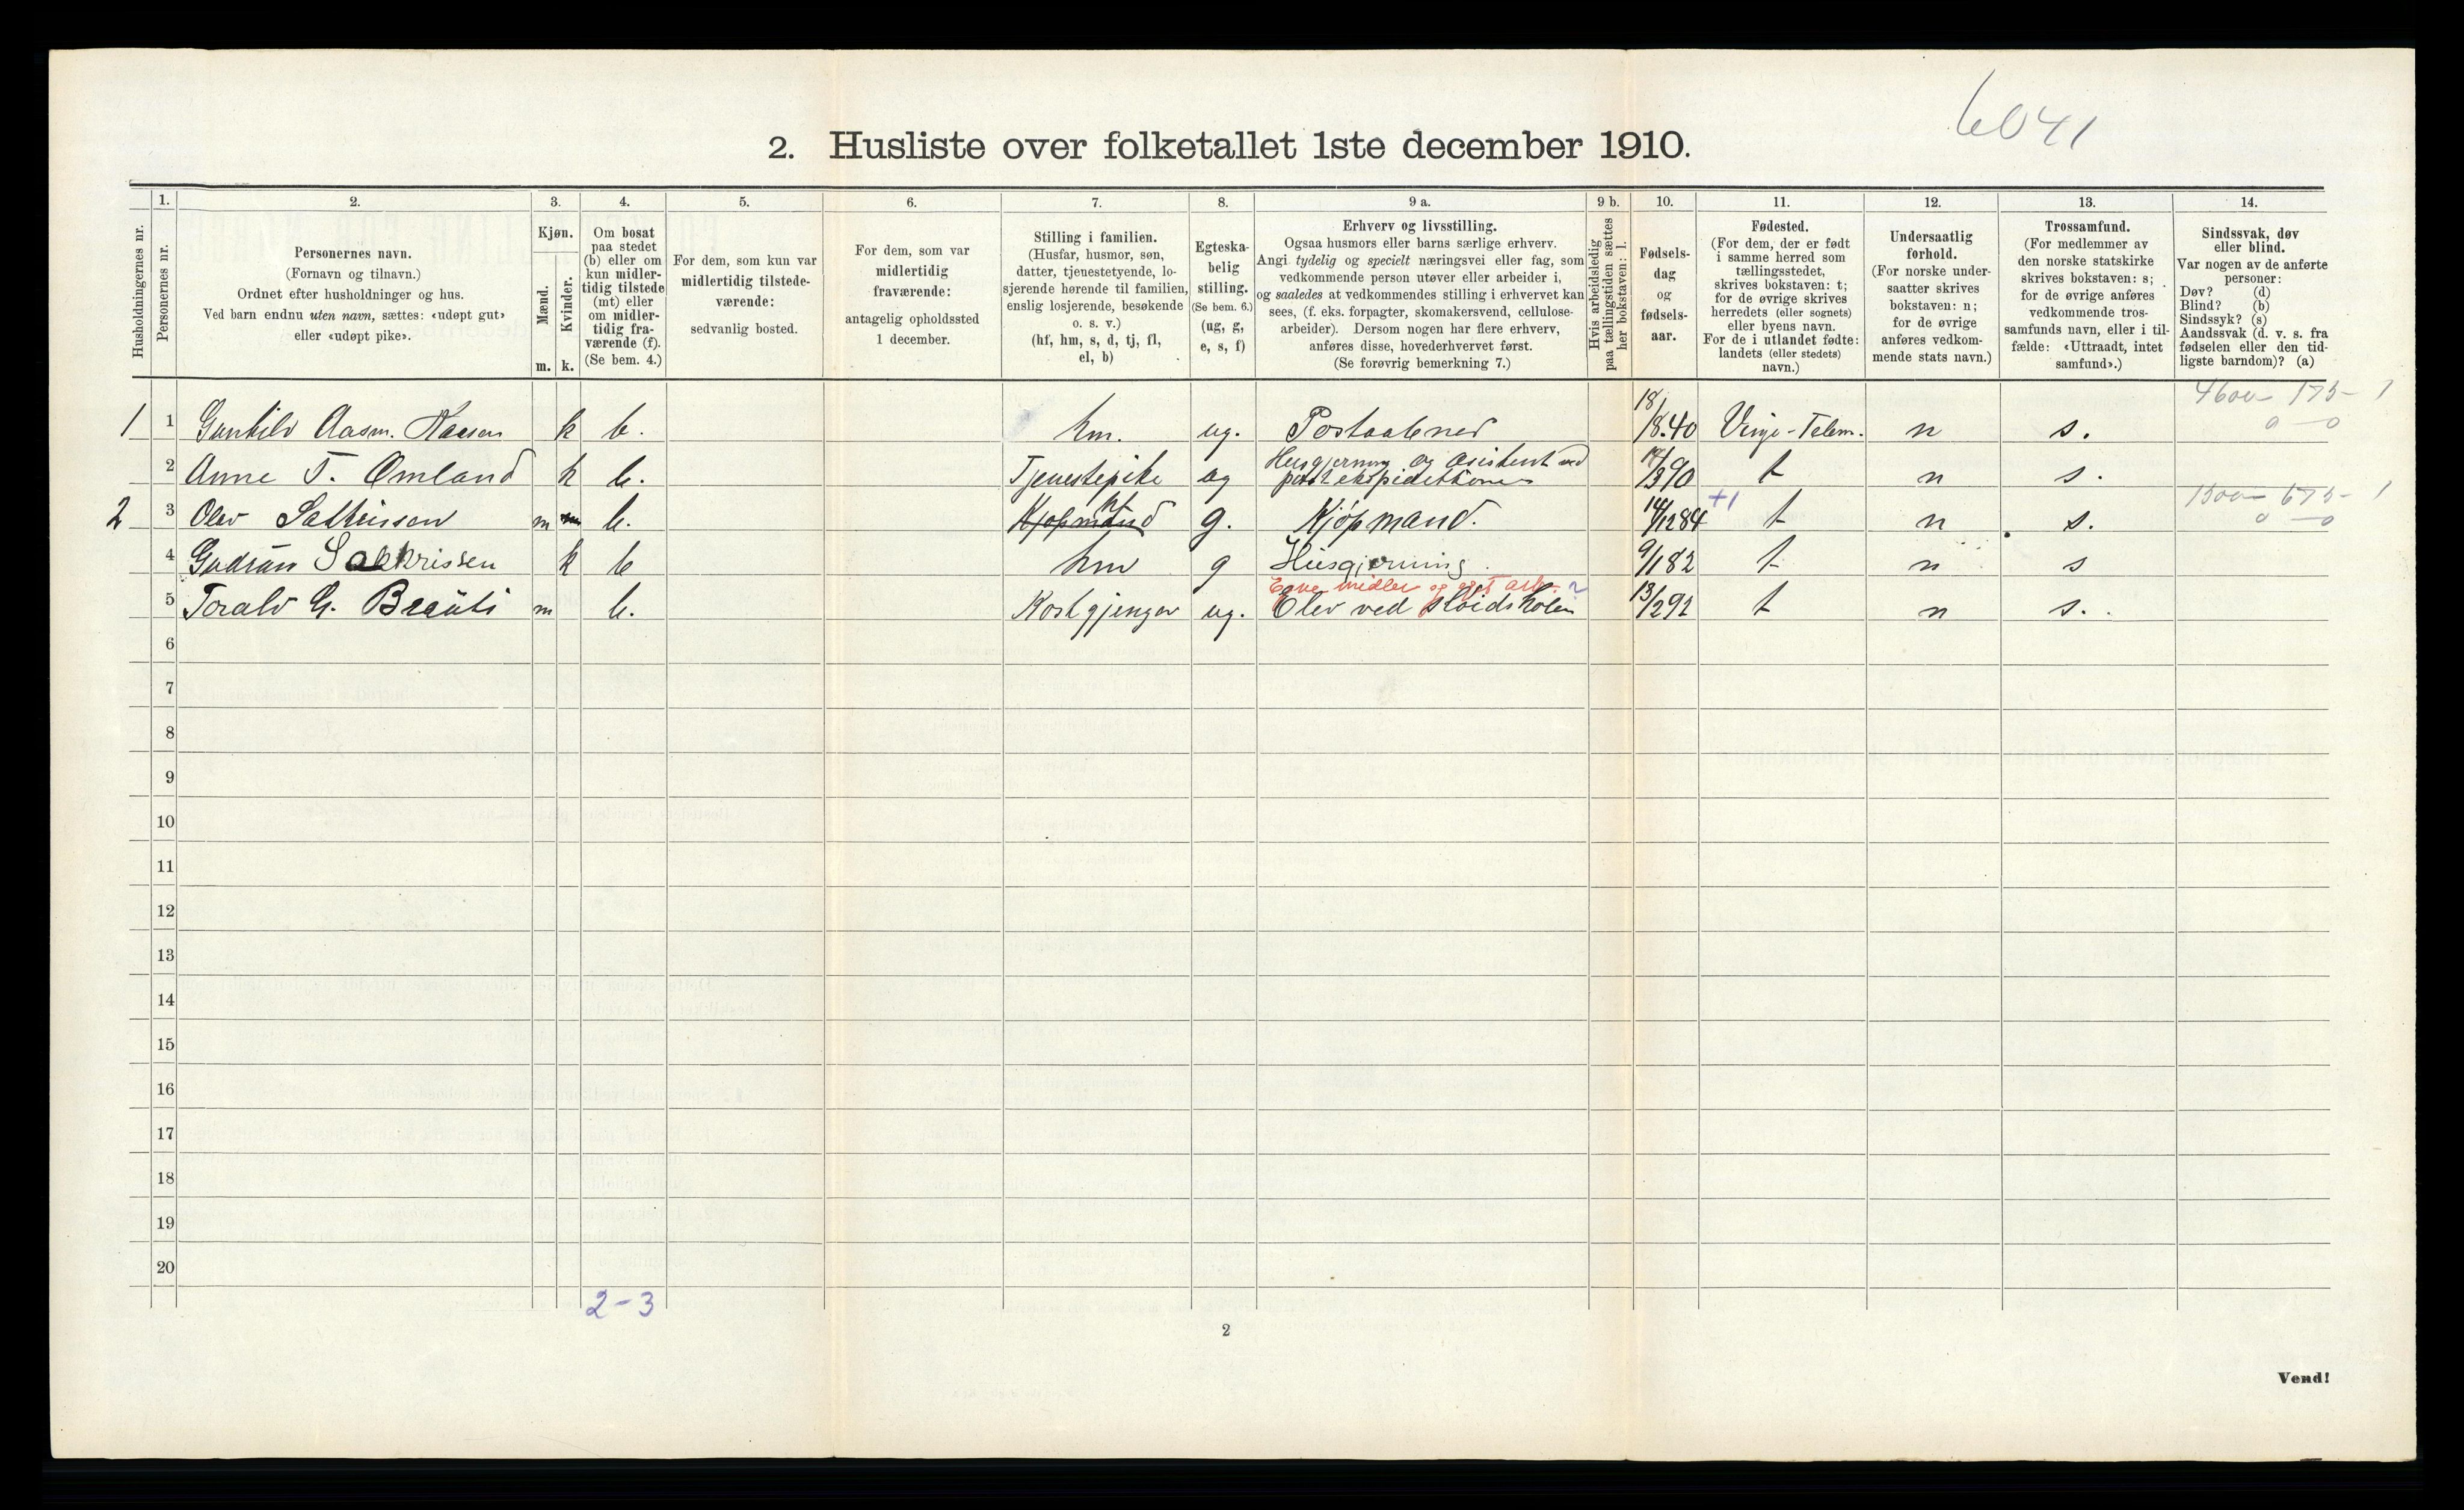 6041
2. Husliste over folketallet 1ste december 1910.
Husholdningernes nr.
1.
Personernes nr.
2.
Personernes navn.
(Fornavn og tilnavn.)
Ordnet efter husholdninger og hus.
Ved barn endnu uten navn, sættes: «udøpt gut»
eller «udøpt pike».
3.
Kjøn.
Mænd.
Kvinder.
m. k.
4.
Om bosat
paa stedet
(b) eller om
kun midler-
tidig tilstede
(mt) eller
om midler-
tidig fra-
værende (f).
(Se bem. 4.)
5.
For dem, som kun var
midlertidig tilstede-
værende:
sedvanlig bosted.
6.
For dem, som var
midlertidig
fraværende:
antagelig opholdssted
1 december.
7.
Stilling i familien.
(Husfar, husmor, søn,
datter, tjenestetyende, lo-
sjerende hørende til familien,
enslig losjerende, besøkende
o. s. v.)
(hf, hm, s, d, tj, fl,
el, b)
8.
Egteska-
belig
stilling.
(Se bem. 6.)
(ug, g,
e, s, f)
9 a.
Erhverv og livsstilling.
Ogsaa husmors eller barns særlige erhverv.
Angi tydelig og specielt næringsvei eller fag, som
vedkommende person utøver eller arbeider i,
og saaledes at vedkommendes stilling i erhvervet kan
sees, (f. eks. forpagter, skomakersvend, cellulose-
arbeider). Dersom nogen har flere erhverv,
anføres disse, hovederhvervet først.
(Se forøvrig bemerkning 7.)
9 b.
Hvis arbeidsledig
paa tællingstiden sættes
her bokstaven: l.
10.
Fødsels-
dag
og
fødsels-
aar.
11.
Fødested.
(For dem, der er født
i samme herred som
tællingsstedet,
skrives bokstaven: t;
for de øvrige skrives
herredets (eller sognets)
eller byens navn.
For de i utlandet fødte:
landets (eller stedets)
navn.)
12.
Undersaatlig
forhold.
(For norske under-
saatter skrives
bokstaven: n;
for de øvrige
anføres vedkom-
mende stats navn.)
13.
Trossamfund.
(For medlemmer av
den norske statskirke
skrives bokstaven: s;
for de øvrige anføres
vedkommende tros-
samfunds navn, eller i til-
fælde: «Uttraadt, intet
samfund».)
14.
Sindssvak, døv
eller blind.
Var nogen av de anførte
personer:
Døv? (d)
Blind? (b)
Sindssyk? (s)
Aandssvak (d. v. s. fra
fødselen eller den tid-
ligste barndom)? (a)
4600 - 175 - 1
0 - 0
1 1 Gunhild Aasm. k b. hm. ug. Postaabner 18/8.40 Vinje-Telem. n s.
2 Anne T. Omland k b. Tjenestepike ug Husgjerning og Asistent ved postekspeditionen /390 t n s.
1500 - 675 - 1
0 - 0
2 3 Olav m b. Kjøpmand hf g. Kjøpmand. 14/1284 +1 t n s.
4 Gudrun Sakkrissen k b hm g Husgjerning. 9/182 t n s
Egne midler og eget arb. ?
5 Torals G. b. m Kostgjenger ug. Elev ved sløidskolen 13/292 t n s.
6
7
8
9
10
11
12
13
14
15
16
17
18
19
20
2-3
2
Vend!